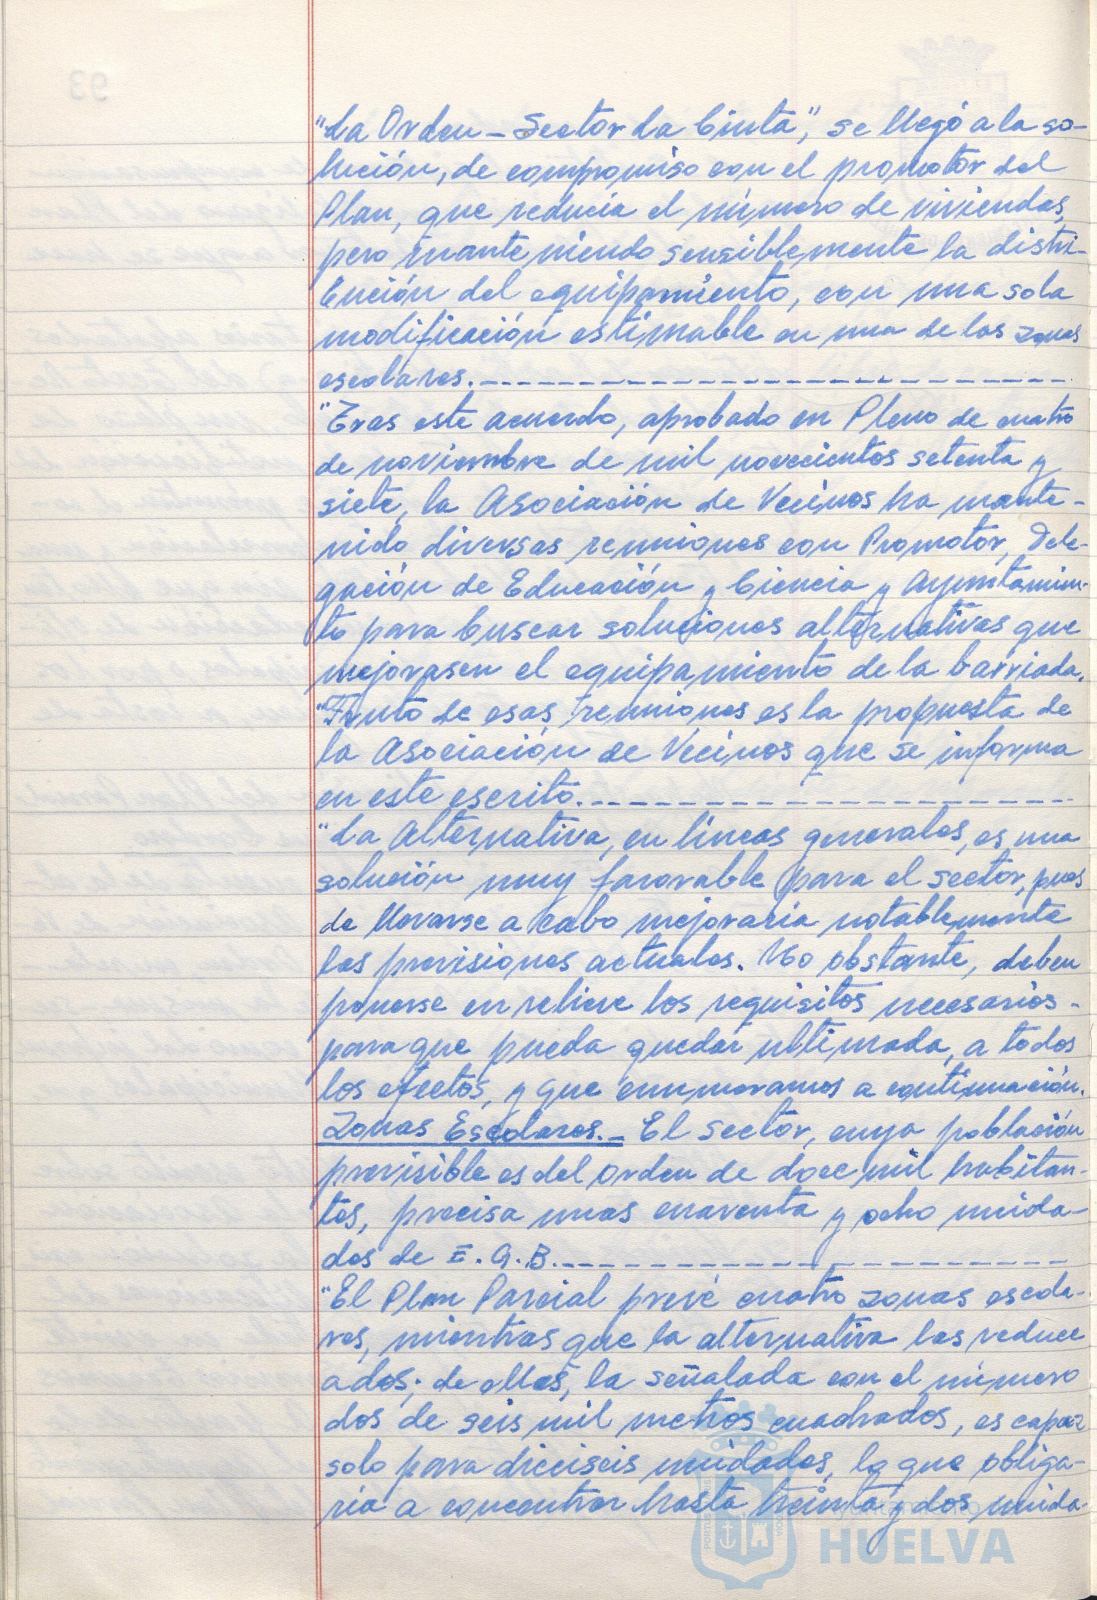 "La Orden - Sector La Cinta", se llegó a la so-
lución, de compromiso con el promotor del
Plan, que reducía el número de viviendas,
pero manteniendo sensiblemente la distri-
bución del equipamiento, con una sola
modificación estimable en una de las zonas
escolares.
"Tras este acuerdo, aprobado en Pleno de cuatro
de noviembre de mil novecientos setenta y
siete, la Asociación de Vecinos ha mante-
nido diversas reuniones con Promotor, Dele-
gación de Educación y Ciencia y Ayuntamien-
to para buscar soluciones alternativas que
mejorasen el equipamiento de la barriada.
"Fruto de esas reuniones es la propuesta de
la Asociación de Vecinos que se informa
en este escrito.
"La Alternativa, en líneas generales, es una
solución muy favorable para el sector, pues
de llevarse a cabo mejoraría notablemente
las previsiones actuales. No obstante, deben
ponerse en relieve los requisitos necesarios -
para que pueda quedar ultimada, a todos
los efectos, y que enumeramos a continuación.
Zonas Escolares.- El sector, cuya población
previsible es del orden de doce mil habitan-
tes, precisa unas cuarenta y ocho unida-
des de E.G.B.
"El Plan Parcial prevé cuatro zonas escola-
res, mientras que la alternativa las reduce
a dos; de ellas, la señalada con el número
dos de seis mil metros cuadrados, es capaz
solo para dieciseis unidades, lo que obliga-
ría a concentrar hasta treinta y dos unida-
93
HUELVA